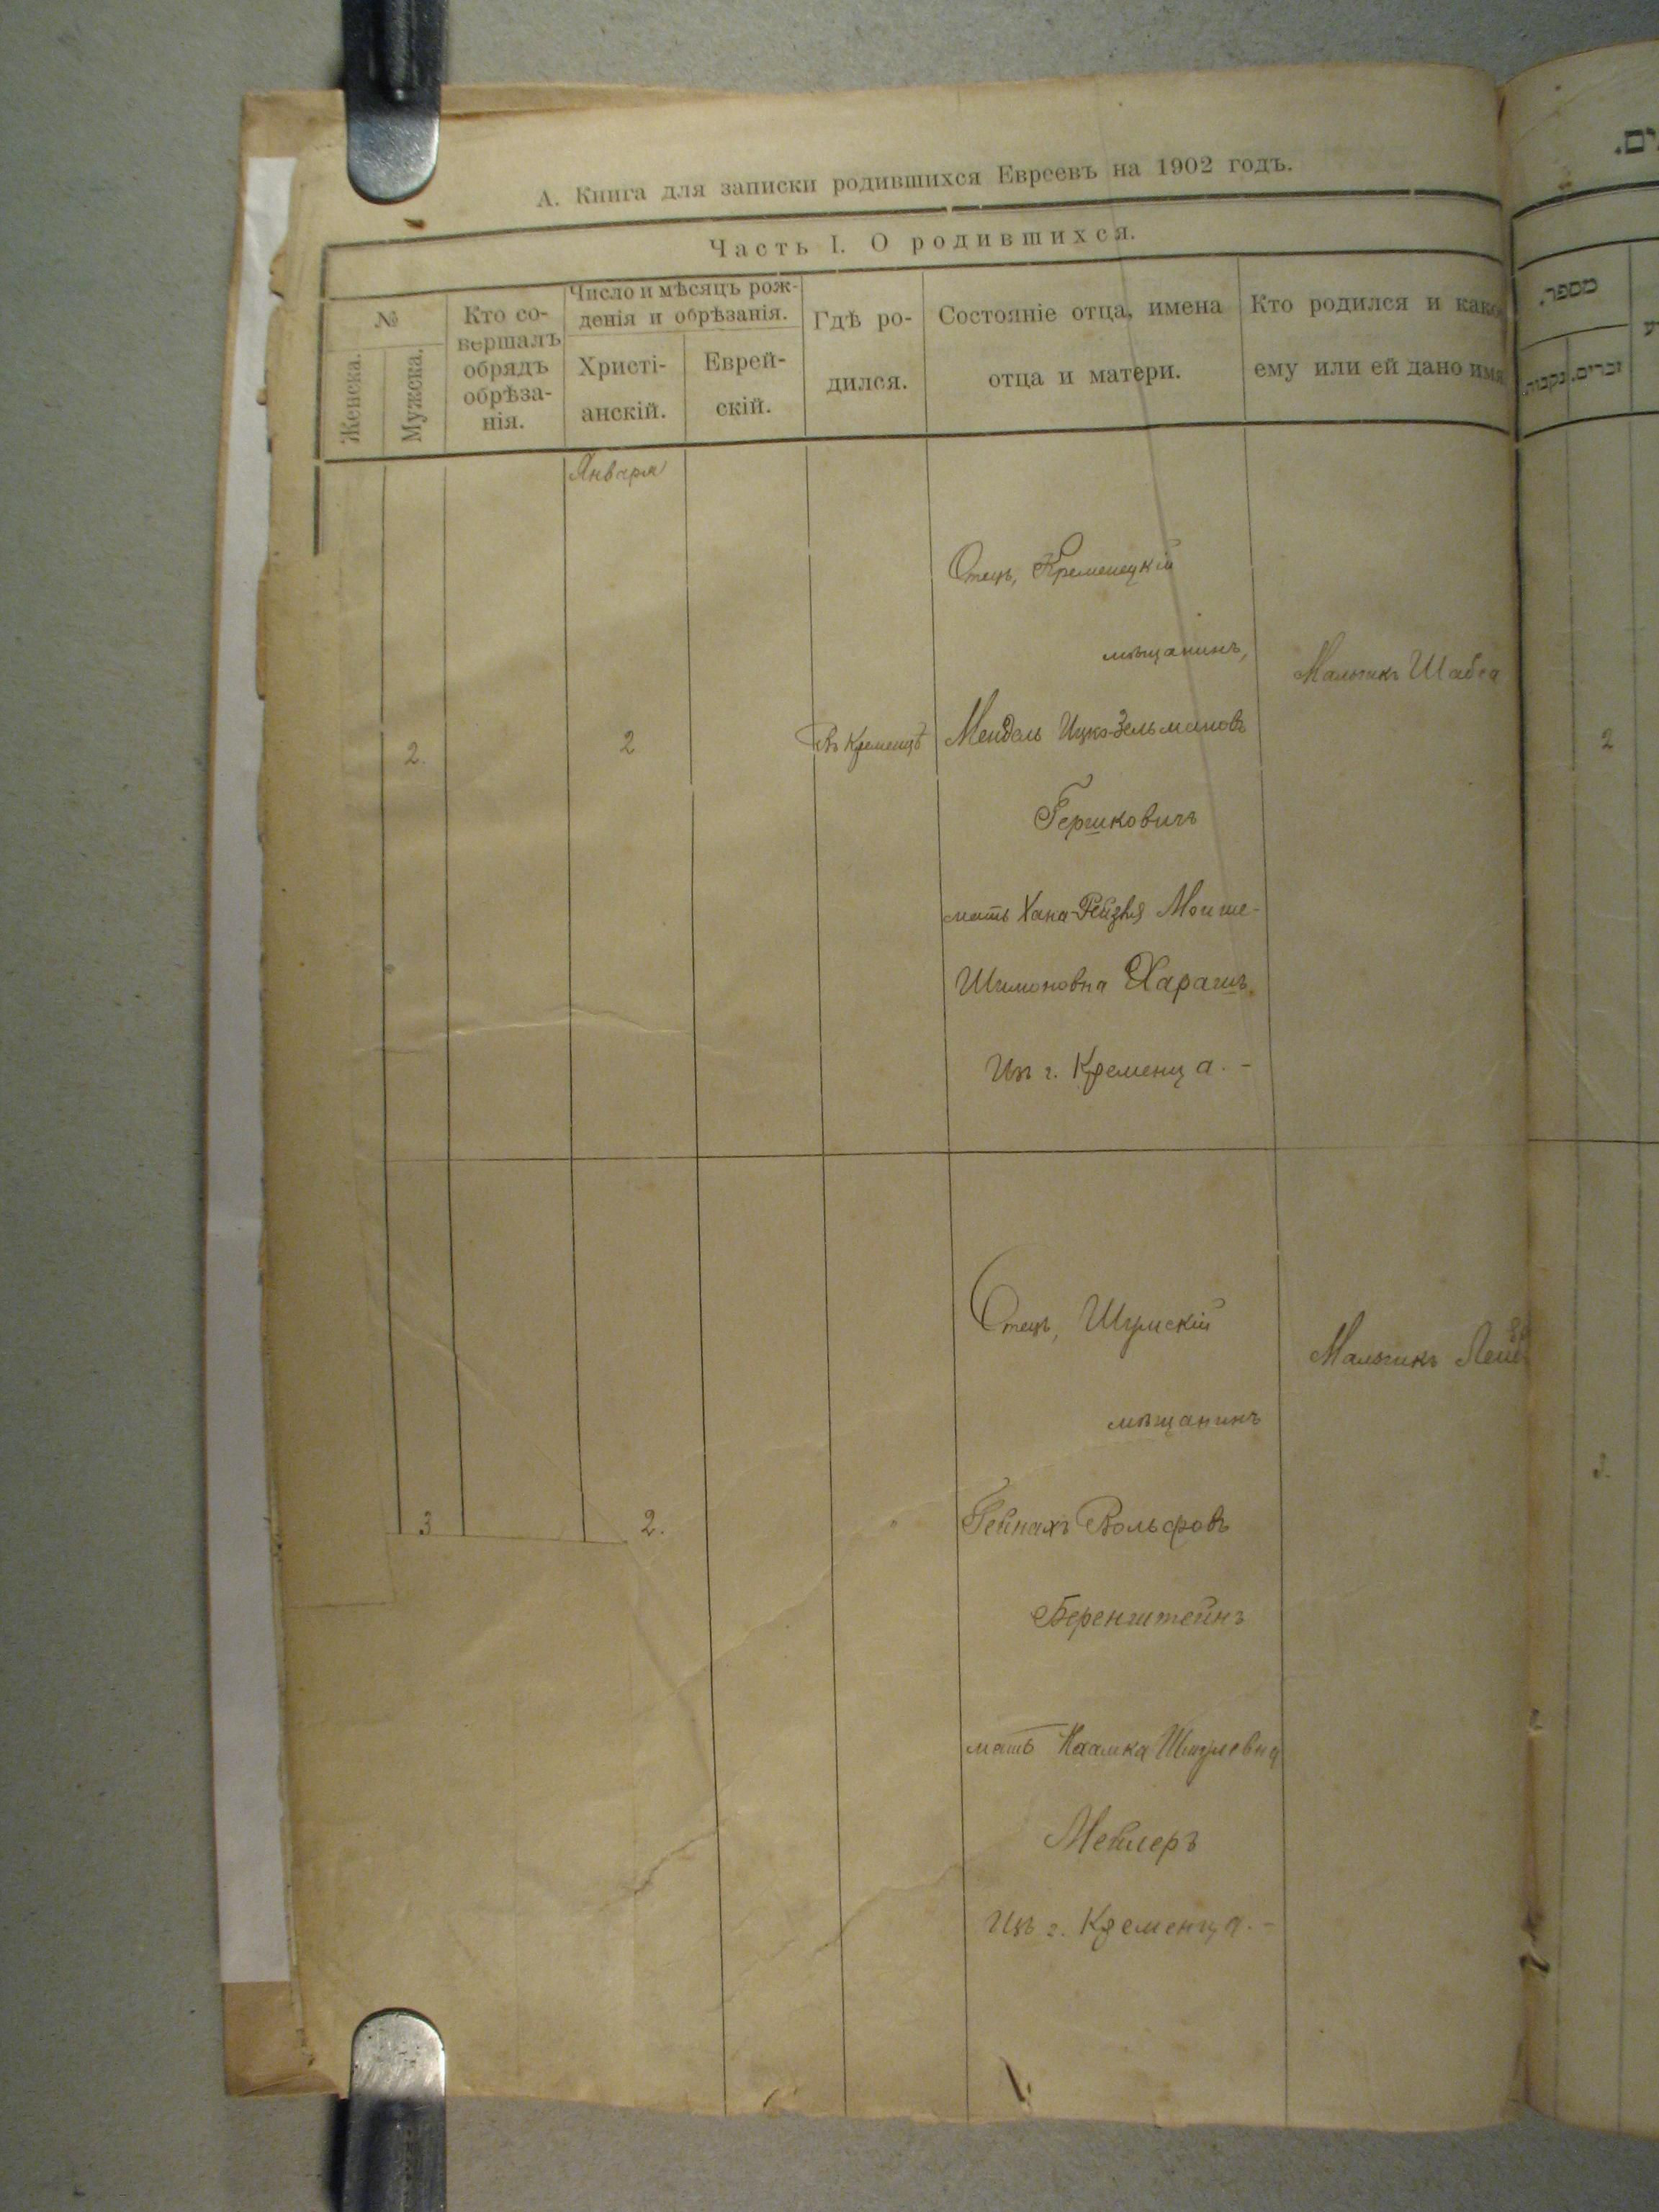 А. Книга для записки родившихся Евреевъ на 1902 годъ.
Часть I. О родившихся.
№
Женска.
Мужска.
Кто со-
вершалъ
обрядъ
обрѣза-
нія.
Число и мѣсяцъ рож-
денія и обрѣзанія.
Христі-
анскій.
Еврей-
скій.
Гдѣ ро-
дился.
Состояніе отца, имена
отца и матери.
Кто родился и како
ему или ей дано имя
מספר.
זכרים.
נקבות.
Января
2.
2
Въ Кременцѣ
Отецъ, Кременецкій
мѣщанинъ,
Мендель Ицко-Зельмановъ
Гершковичъ
мать Хана-Рейзля Мойше-
Шимоновна Харашъ.
Изъ г. Кременца. -
Мальчикъ Шабса
2
3
2.
Отецъ, Шумскій
мѣщанинъ
Гейнахъ Вольфовъ
Беренштейнъ
мать
Мейлеръ
Изъ г. Кременца. -
Мальчикъ
3.